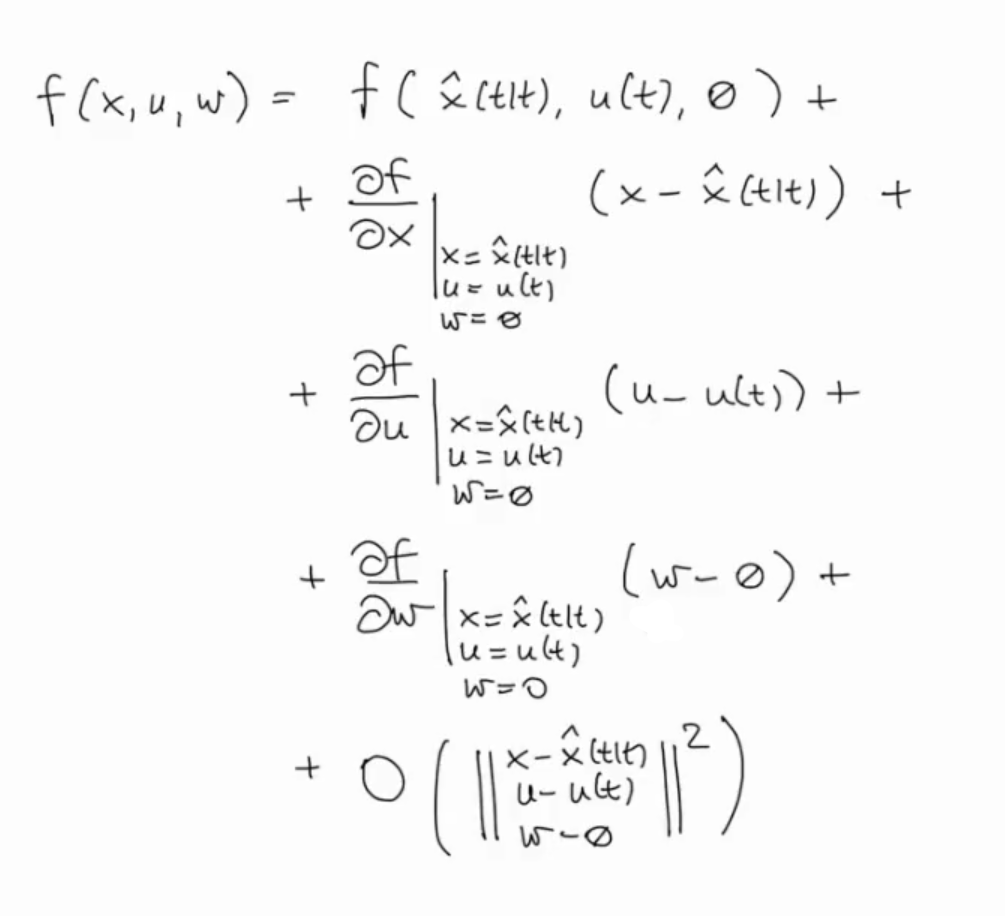 f(x, u, w) = f( x̂(t|t), u(t), ∅ ) +
+ ∂f/∂x | x = x̂(t|t) u = u(t) w = ∅ (x - x̂(t|t)) +
+ ∂f/∂u | x = x̂(t|t) u = u(t) w = ∅ (u - u(t)) +
+ ∂f/∂w | x = x̂(t|t) u = u(t) w = 0 (w - ∅) +
+ O ( ‖ x - x̂(t|t) u - u(t) w - ∅ ‖² )